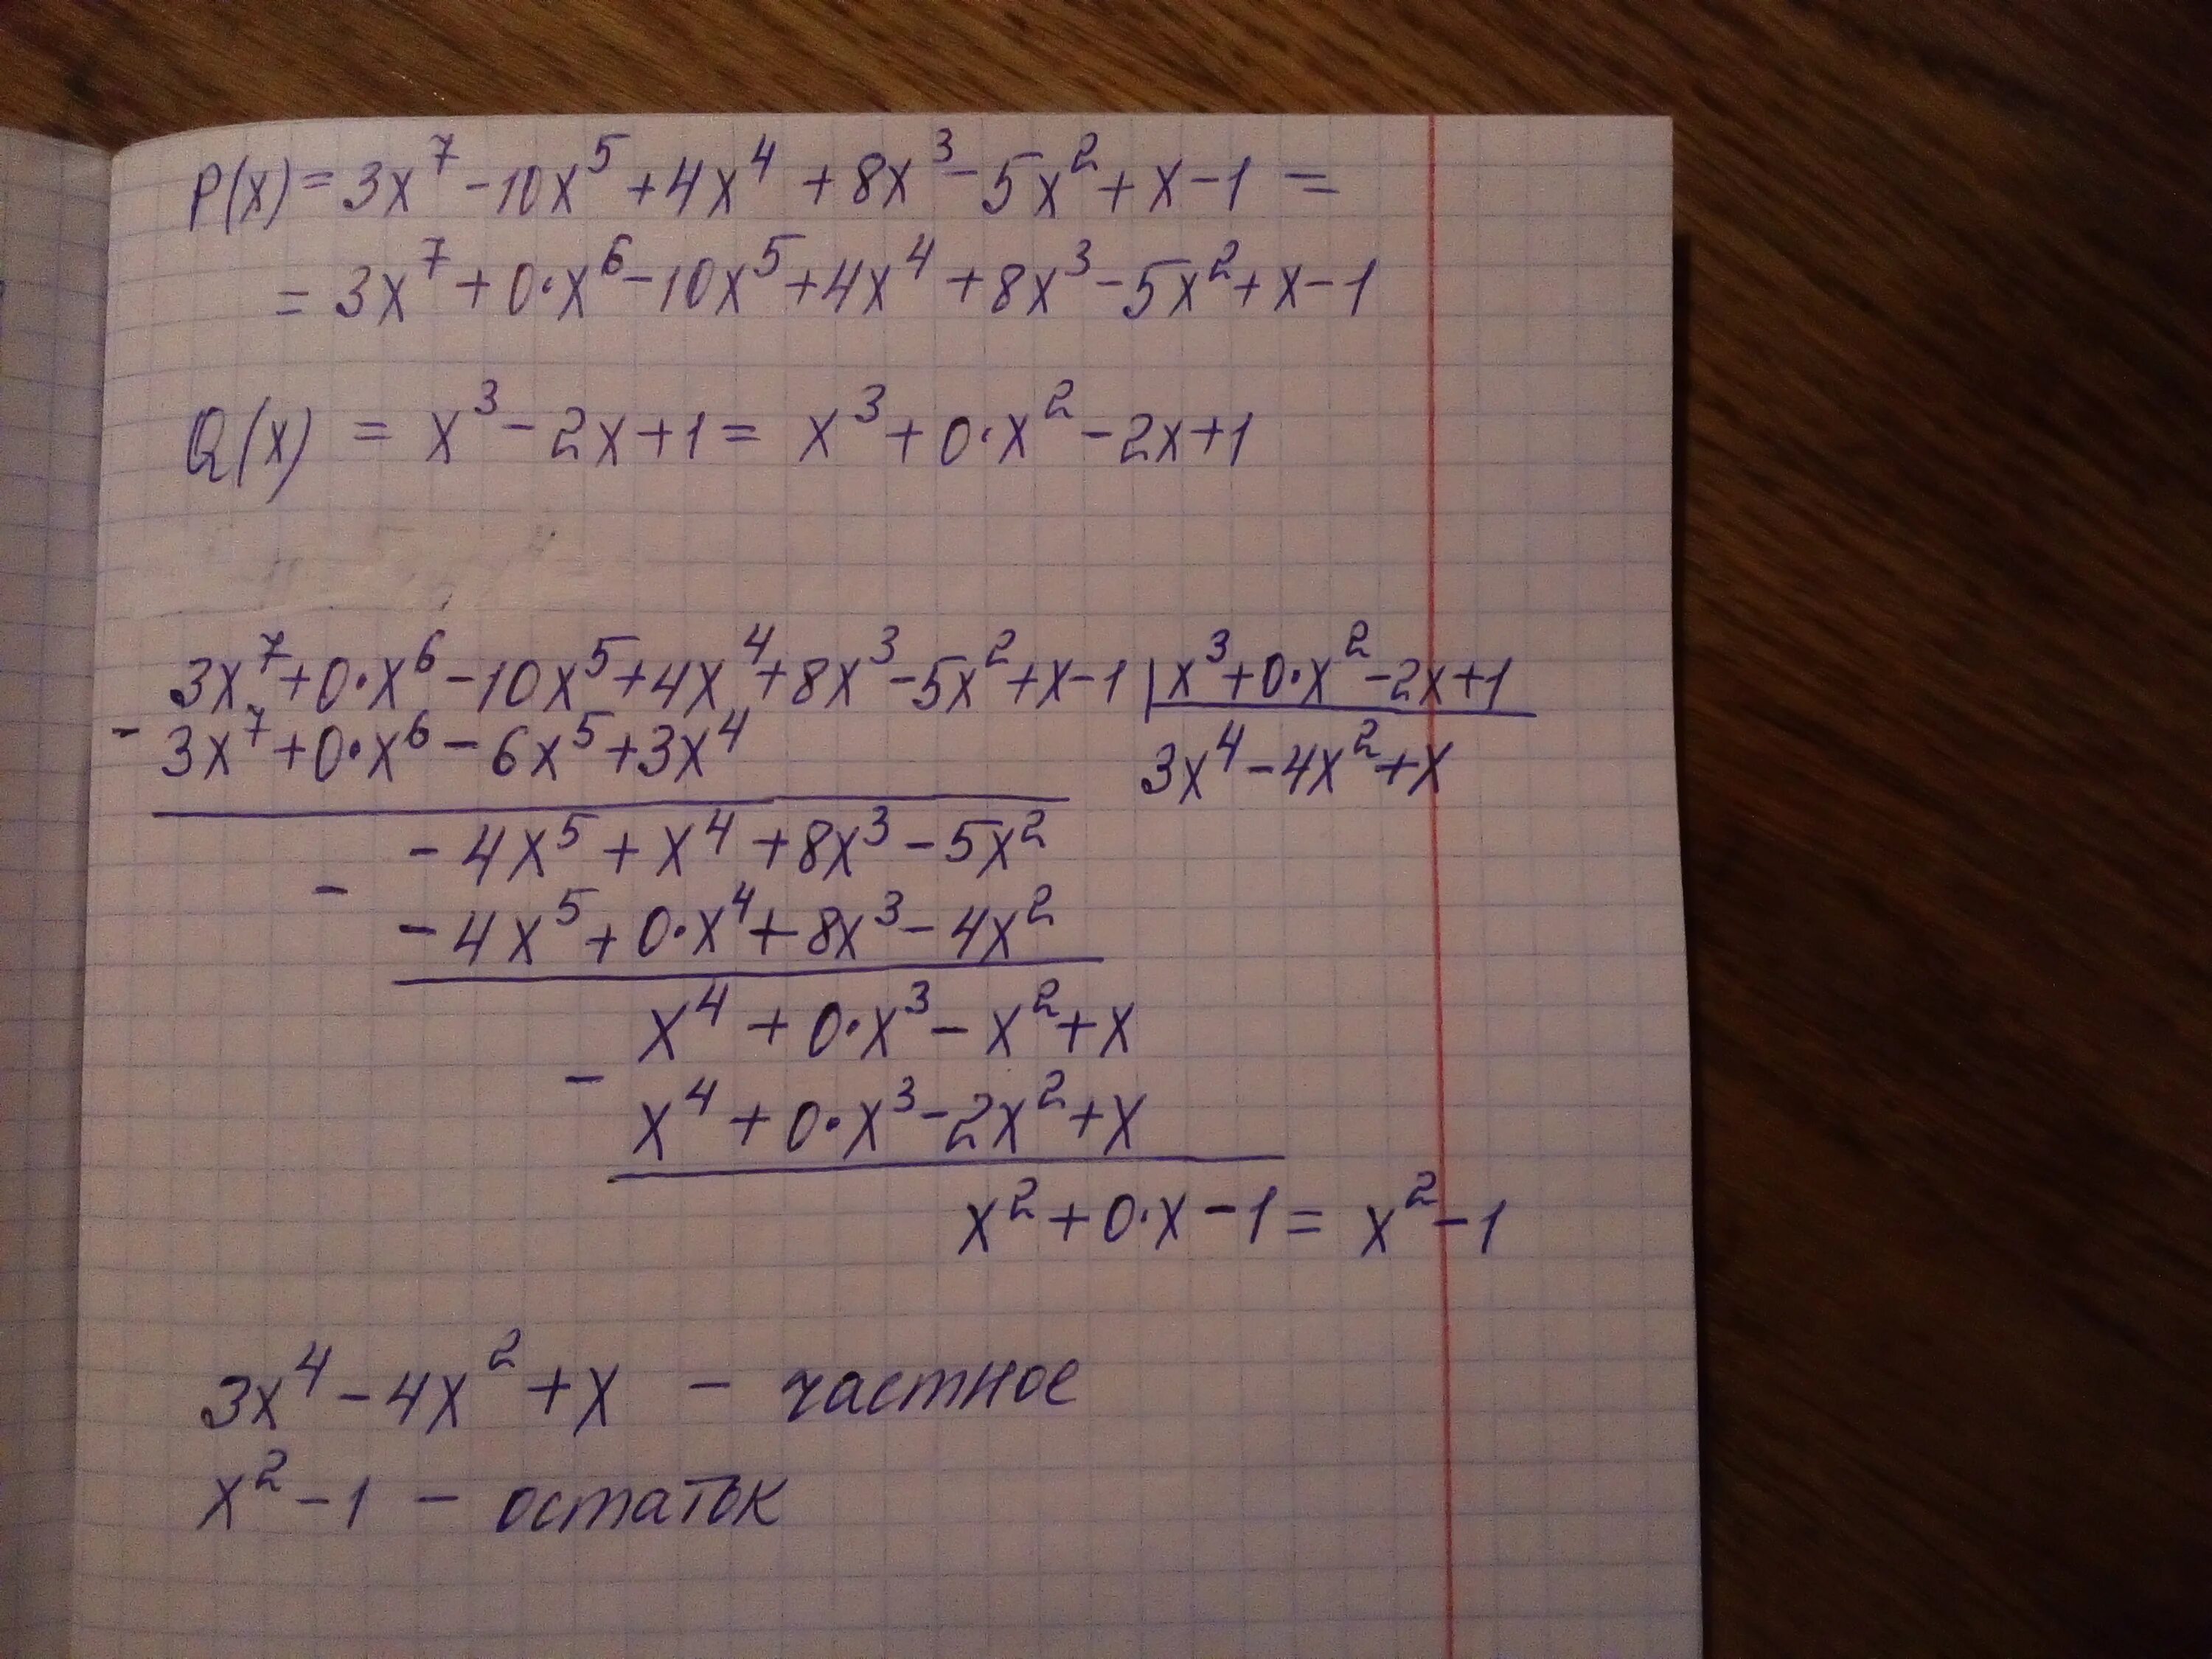 P(x) = 3x⁷ - 10x⁵ + 4x⁴ + 8x³ - 5x² + x - 1 =
= 3x⁷ + 0·x⁶ - 10x⁵ + 4x⁴ + 8x³ - 5x² + x - 1
Q(x) = x³ - 2x + 1 = x³ + 0·x² - 2x + 1
3x⁷ + 0·x⁶ - 10x⁵ + 4x⁴ + 8x³ - 5x² + x - 1 | x³ + 0·x² - 2x + 1
- 3x⁷ + 0·x⁶ - 6x⁵ + 3x⁴ 3x⁴ - 4x² + x
- 4x⁵ + x⁴ + 8x³ - 5x²
-
- 4x⁵ + 0·x⁴ + 8x³ - 4x²
x⁴ + 0·x³ - x² + x
-
x⁴ + 0·x³ - 2x² + x
x² + 0·x - 1 = x² - 1
3x⁴ - 4x² + x - частное
x² - 1 - остаток